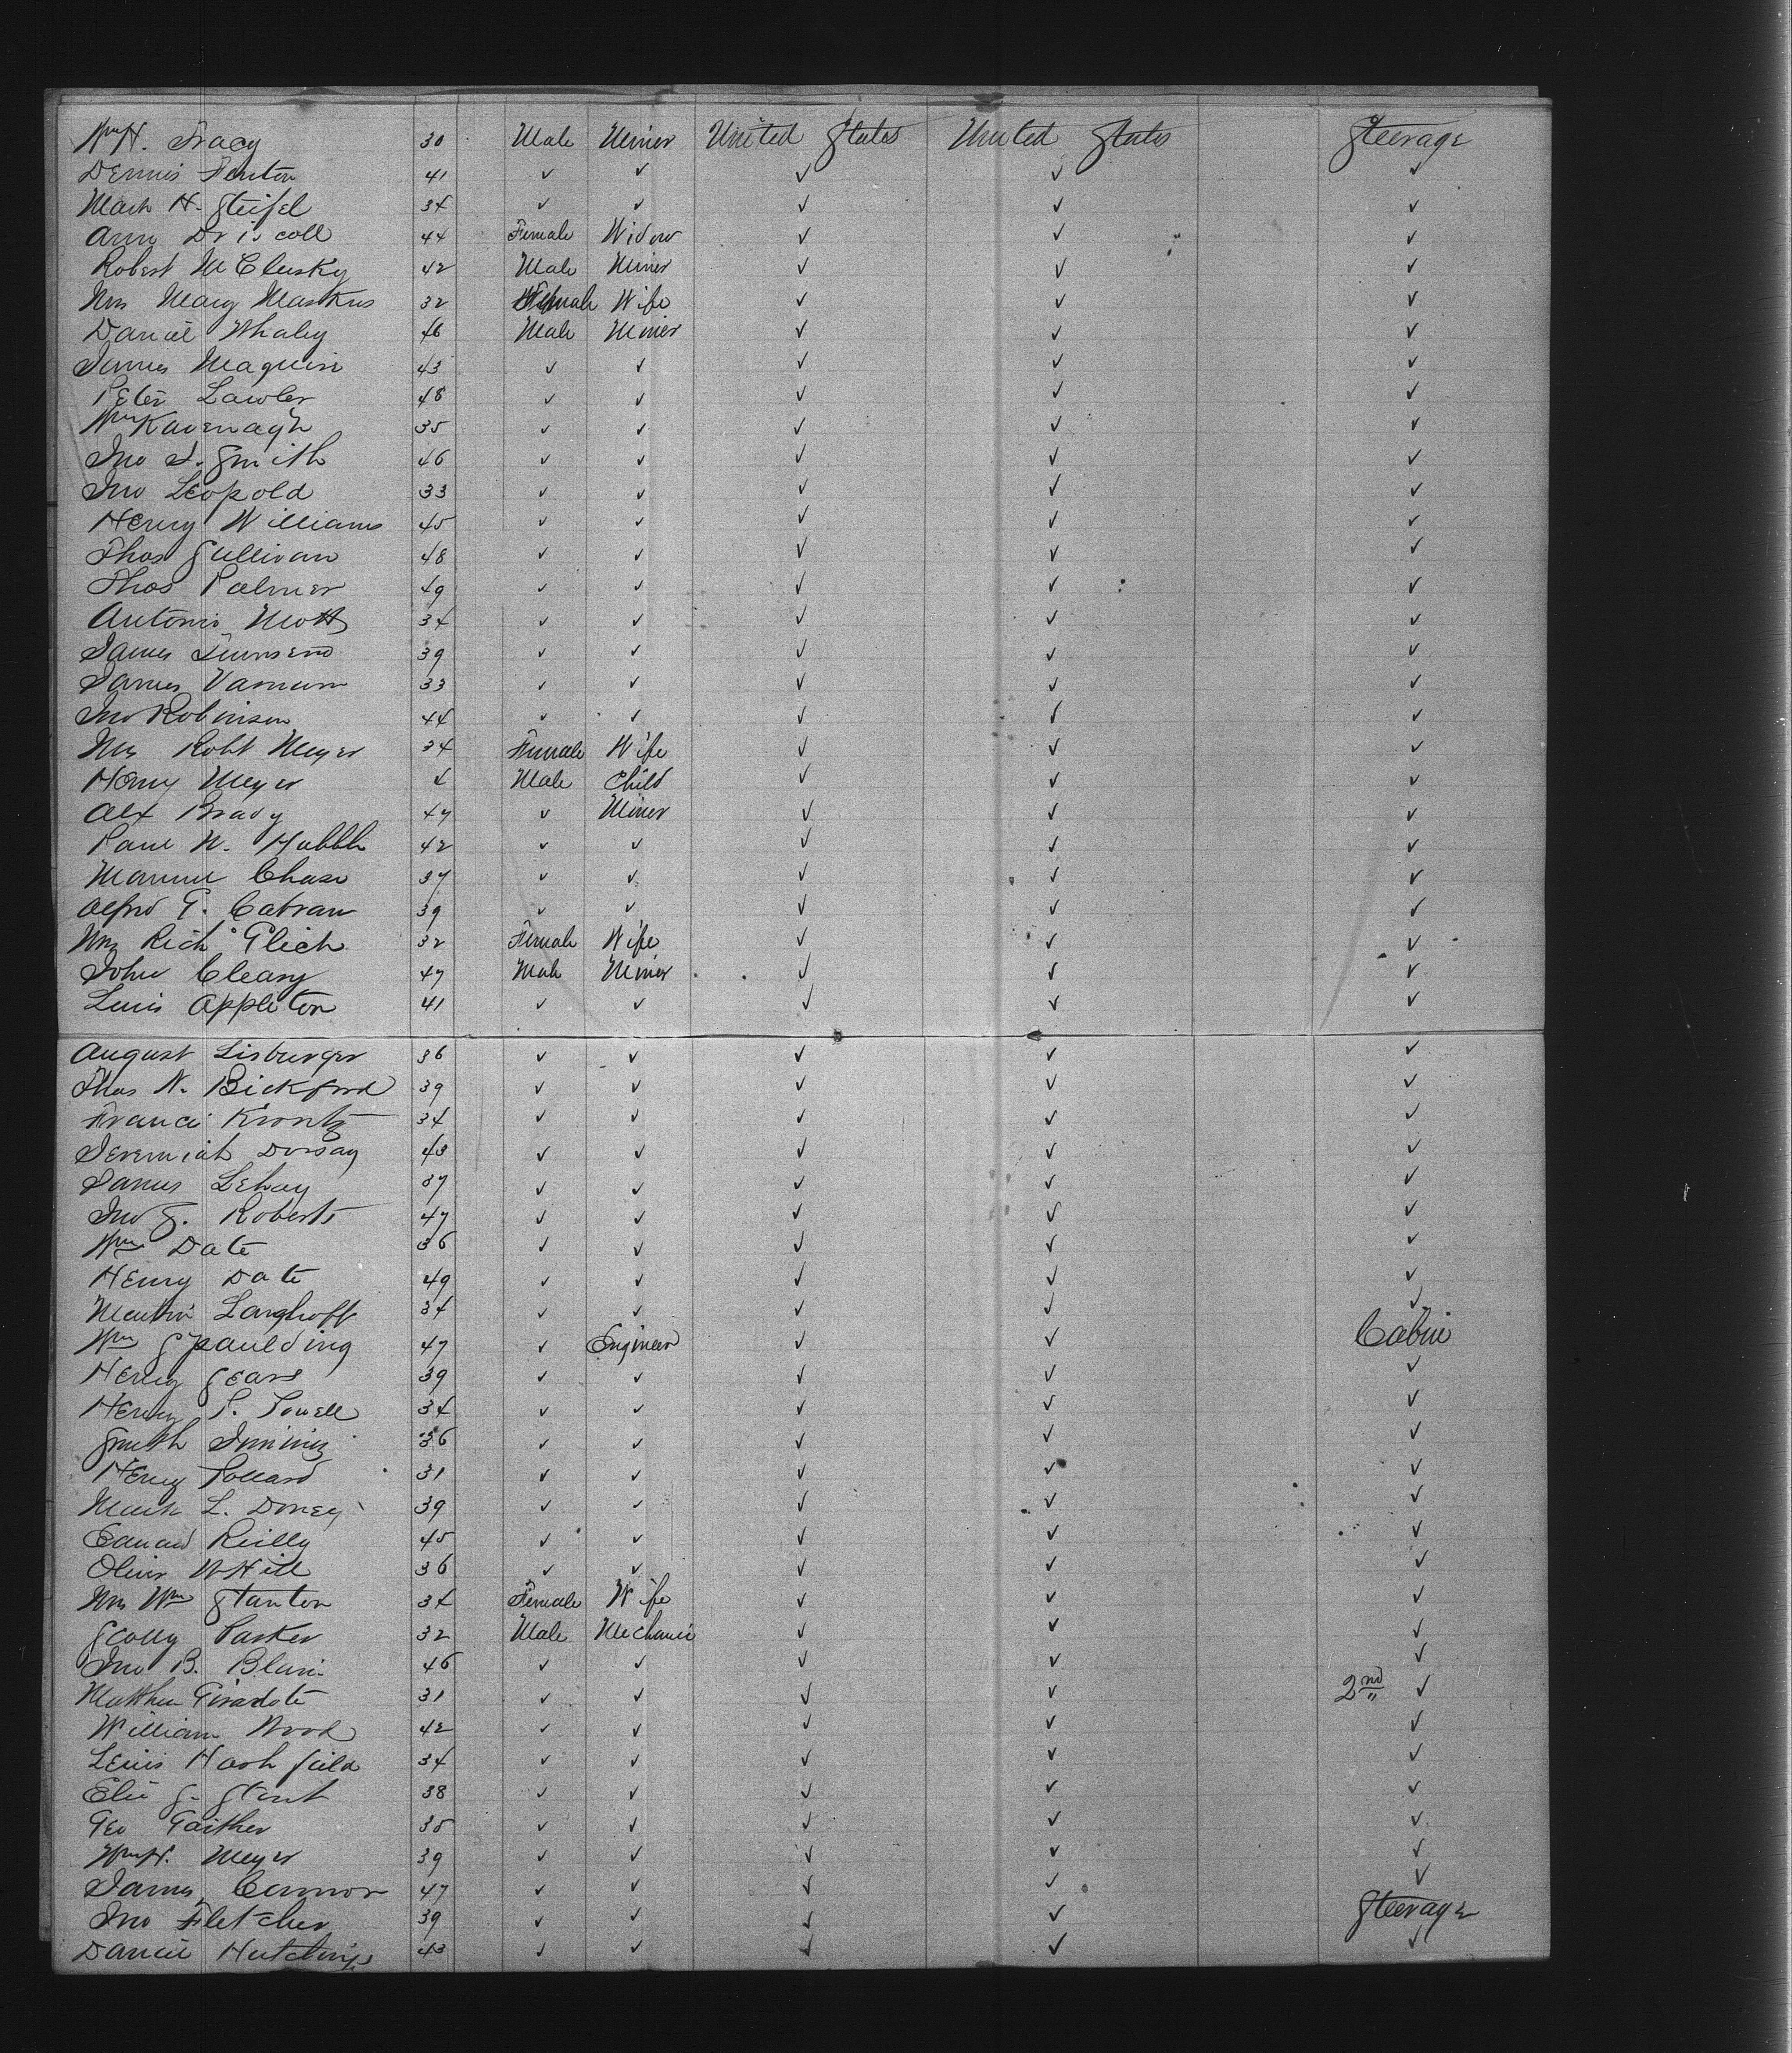 Wm H. Tracy 30 Male Miner United States United States Steerage
Dennis Fenton 41 ✓ ✓ ✓ ✓ ✓
Mark H. Steifel 34 ✓ ✓ ✓ ✓ ✓
Ann Driscoll 44 Female Widow ✓ ✓ ✓
Robert McClusky 42 Male Miner ✓ ✓ ✓
Mrs Mary Maskus 32 Female Wife ✓ ✓ ✓
Daniel Whaley 46 Male Miner ✓ ✓ ✓
James Maguin 43 ✓ ✓ ✓ ✓ ✓
Peter Lawler 48 ✓ ✓ ✓ ✓ ✓
Wm Kavenagh 35 ✓ ✓ ✓ ✓ ✓
Jno S. Smith 46 ✓ ✓ ✓ ✓ ✓
Jno Leopold 33 ✓ ✓ ✓ ✓ ✓
Henry Williams 45 ✓ ✓ ✓ ✓ ✓
Thos Sullivan 48 ✓ ✓ ✓ ✓ ✓
Thos Palmer 49 ✓ ✓ ✓ ✓ ✓
Antonio Mott 34 ✓ ✓ ✓ ✓ ✓
James Townsend 39 ✓ ✓ ✓ ✓ ✓
James Varnum 33 ✓ ✓ ✓ ✓ ✓
Jno Robinson 44 ✓ ✓ ✓ ✓ ✓
Mrs Robt Meyer 34 Female Wife ✓ ✓ ✓
Henry Meyer 4 Male Child ✓ ✓ ✓
Alex Brady 47 ✓ Miner ✓ ✓ ✓
Paul N. Hubbll 42 ✓ ✓ ✓ ✓ ✓
Chase 37 ✓ ✓ ✓ ✓ ✓
Alfred G. Catran 39 ✓ ✓ ✓ ✓ ✓
Mrs Rich Glich 32 Female Wife ✓ ✓ ✓
John Cleary 47 Male Miner ✓ ✓ ✓
Louis Appleton 41 ✓ ✓ ✓ ✓ ✓
August Lisburger 36 ✓ ✓ ✓ ✓ ✓
Thos N. Bickford 39 ✓ ✓ ✓ ✓ ✓
Francis Krontz 34 ✓ ✓ ✓ ✓ ✓
Jeremiah Dorsay 43 ✓ ✓ ✓ ✓ ✓
James Lehay 37 ✓ ✓ ✓ ✓ ✓
Jno S. Roberts 47 ✓ ✓ ✓ ✓ ✓
Wm Date 36 ✓ ✓ ✓ ✓ ✓
Henry Date 49 ✓ ✓ ✓ ✓ ✓
Martin Langhoff 34 ✓ ✓ ✓ ✓ ✓
Wm Spaulding 47 ✓ Engineer ✓ ✓ Cabin
Henry Sears 39 ✓ ✓ ✓ ✓ ✓
Henry P. Powell 34 ✓ ✓ ✓ ✓ ✓
Smith 36 ✓ ✓ ✓ ✓ ✓
Henry Pollard 31 ✓ ✓ ✓ ✓ ✓
Mark L. Doney 39 ✓ ✓ ✓ ✓ ✓
Edward Reilly 45 ✓ ✓ ✓ ✓ ✓
Oliver W Hill 36 ✓ ✓ ✓ ✓ ✓
Mrs Wm Stanton 34 Female Wife ✓ ✓ ✓
Parker 32 Male Mechanic ✓ ✓ ✓
Jno B. Blain 46 ✓ ✓ ✓ ✓ ✓
Matthew Girardote 31 ✓ ✓ ✓ ✓ 2nd " ✓
William Wood 42 ✓ ✓ ✓ ✓ ✓
Lewis Hashfield 34 ✓ ✓ ✓ ✓ ✓
Elie S. Stout 38 ✓ ✓ ✓ ✓ ✓
Geo Gaither 35 ✓ ✓ ✓ ✓ ✓
Wm H. Meyer 39 ✓ ✓ ✓ ✓ ✓
James Connor 47 ✓ ✓ ✓ ✓ ✓
Jno Fletcher 39 ✓ ✓ ✓ ✓ Steerage
Daniel Hutchings 43 ✓ ✓ ✓ ✓ ✓